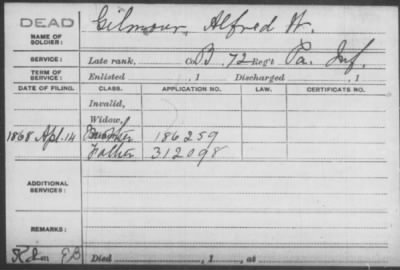 DEAD
NAME OF SOLDIER: Gilmour, Alfred W.
SERVICE: Late rank, Co. B, 72 Reg't Pa. Inf.
TERM OF SERVICE: Enlisted , 1 Discharged , 1
DATE OF FILING. CLASS. APPLICATION NO. LAW. CERTIFICATE NO.
Invalid,
Widow,
1868 Apl. 14 186259
Father 312098
ADDITIONAL SERVICES:
REMARKS:
Died , 1 , at